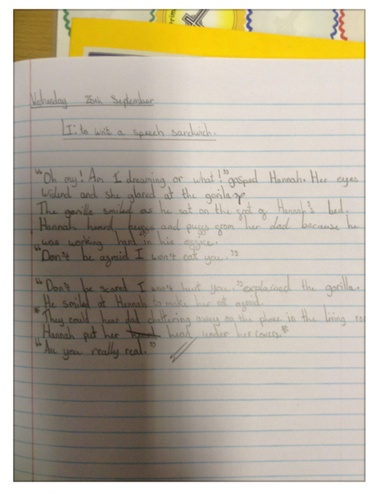 Wednesday 20th September
LI: to write a speech sandwich.
"Oh my! Am I dreaming or what!" gasped Hannah. Her eyes
widend and she glared at the gorilla.
The gorilla smiled as he sat on the end of Hannah's bed.
Hannah heard and puggs from her dad because he
was working hard in his office.
"Don't be afraid I won't eat you."
"Don't be scared I won't hurt you." explained the gorilla.
He smiled at Hannah to make her not afraid.
They could hear dad chattering away on the phone in the living
Hannah put her head under her covers.
"Are you really real."